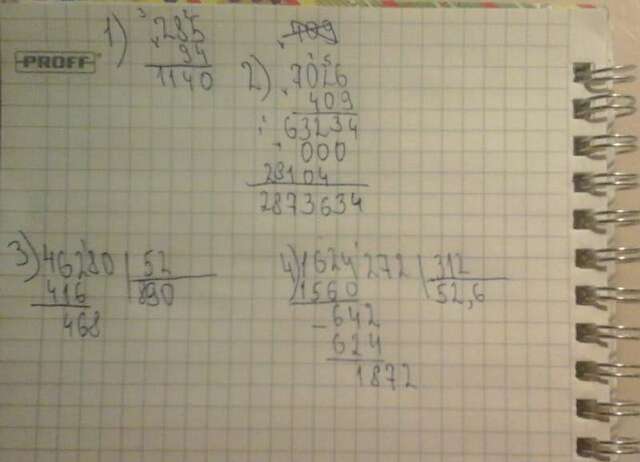 PROFF
1) 285
94
1140
2) 7026
409
63234
000
28104
2873634
3) 46280 52
416 890
468
4) 1624272 312
1560 52,6
642
624
1872